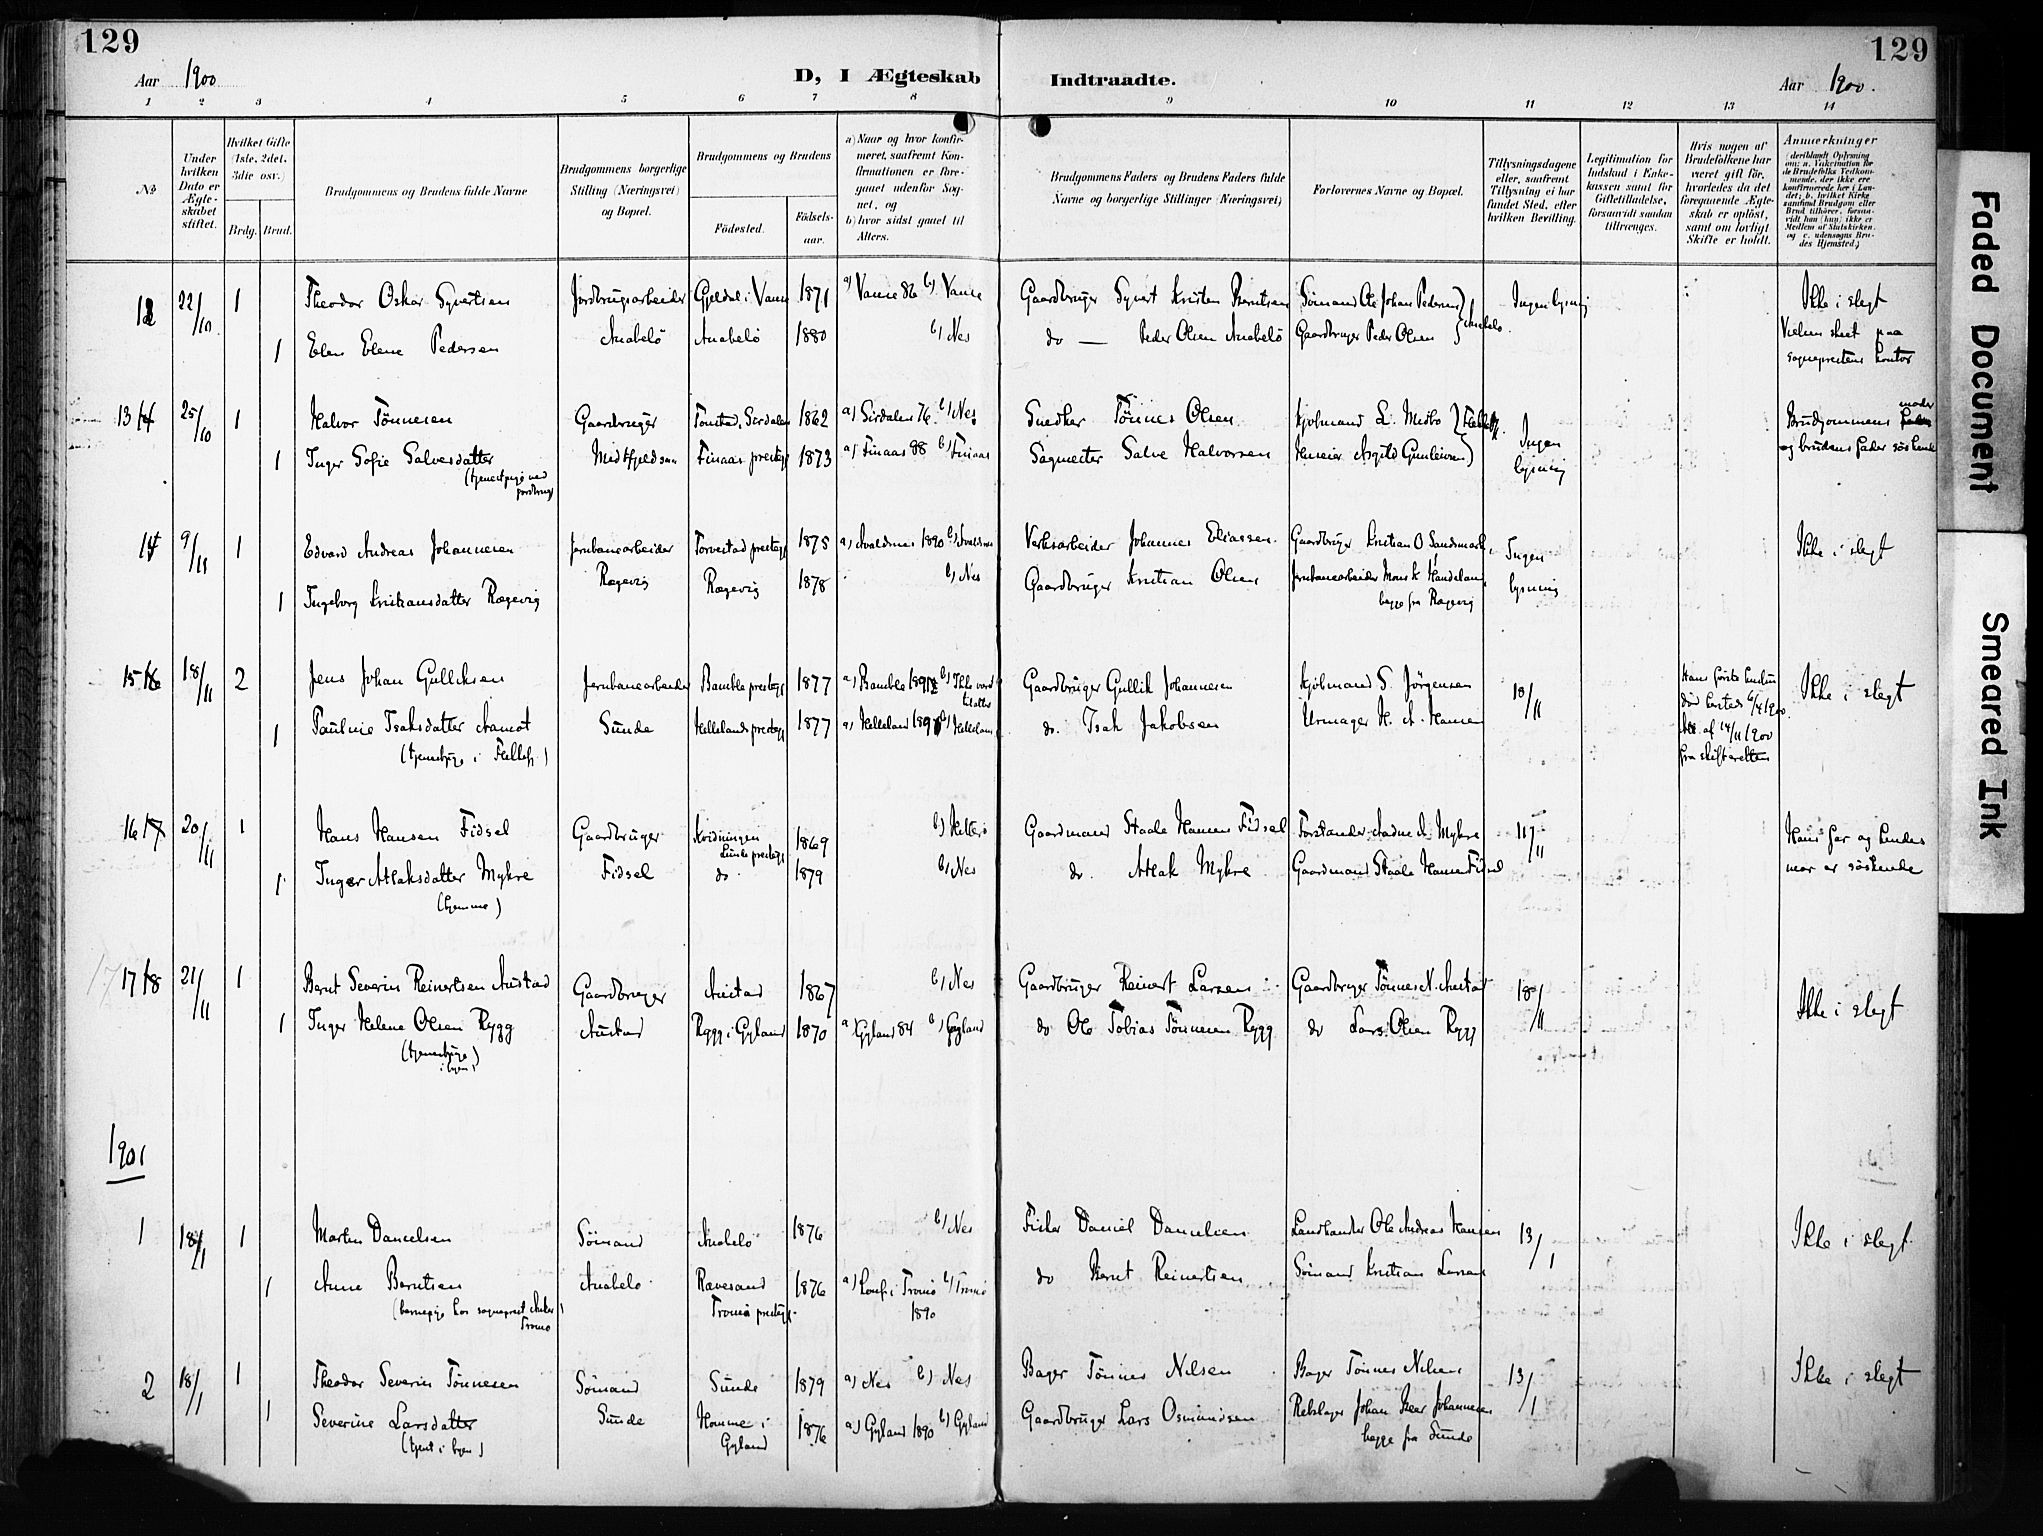 129
129
Aar 1900
D, I Ægteskab Indtraadte.
Aar 1900.
1 2 3 4 5 6 7 8 9 10 11 12 13 14
No
Under hvilken Dato er Ægteskabet stiftet.
Hvilket Gifte (1ste, 2det, 3die osv.)
Brdg. Brud.
Brudgommens og Brudens fulde Navne
Brudgommens borgerlige Stilling (Næringsvei) og Bopæl.
Brudgommens og Brudens
Födested.
Födsels-aar.
a) Naar og hvor konfirmeret, saafremt Konfirmationen er foregaaet udenfor Sognet, og
b) hvor sidst gaaet til Alters.
Brudgommens Faders og Brudens Faders fulde Navne og borgerlige Stillinger (Næringsvei)
Forlovernes Navne og Bopæl.
Tillysningsdagene eller, saafremt Tillysning ei har fundet Sted, efter hvilken Bevilling.
Legitimation for Indskud i Enkekassen samt for Giftetilladelse, forsaavidt saadan tiltrænges.
Hvis nogen af Brudefolkene har været gift för, hvorledes da det foregaaende Ægteskab er oplöst, samt om lovligt Skifte er holdt.
Anmærkninger (deriblandt Oplysning om: a. Vakcination for de Brudefolks Vedkommende, der ikke ere konfirmerede her i Landet; b. hvilket Kirkesamfund Brudgom eller Brud tilhörer, forsaavidt han (hun) ikke er Medlem af Statskirken, og c. udensogns Brudes Hjemsted.)
12 22/10 1 Theodor Oskar Syvertsen Jordbrugsarbeider Gjeldal i Vanse 1871 a) Vanse 86 b) Vanse Gaardbruger Syvert Kristen Berntsen Sömand Ole Johan Pedersen Ingen lysning Ikke i slegt
1 Elen Elene Pedersen Anabelö Anabelö 1880 b) Nes do — Peder Olsen Anabelö Gaardbruger Peder Olsen Anabelö Vielsen skeet paa
sogneprestens kontor
13 25/10 1 Halvor Tönnesen Gaardbruger Tonstad, Sirdalen 1862 a) Sirdalen 76 b) Nes Snedker Tönnes Olsen Kjöbmand L. Medbö Ingen lysning Brudgommens moder
1 Inger Sofie Salvesdatter Midtfjeld Finaas prestegj 1873 a) Finaas 88 b) Finaas Sagmester Salve Halvorsen og brudens fader söskende
14 9/11 1 Edvard Andreas Johannesen Jernbanearbeider Torvestad prestegj 1875 a) Avaldsnes 1890 b) Avaldsnes Verksarbeider Johannes Eliassen Gaardbruger Kristian O Sandsmark Ingen Ikke i slegt
1 Ingeborg Kristiansdatter Rægevig Rægevig Rægevig 1878 b) Nes Gaardbruger Kristian Olsen Jernbanearbeider Mons K Handeland lysning
begge fra Rægevig
15 18/11 2 Jens Johan Gulliksen Jernbanearbeider Bamble prestegj 1877 a) Bamble b) Ikke været til alters Gaardbruger Gullik Johannesen Kjöbmand S. Jörgensen 18/11 Ikke i slegt
1 Pauline Isaksdatter Aamot Sunde Hellelands prestegj 1877 a) Helleland b) Helleland do. Isak Jakobsen Urmager H. A. Hansen
Att. af 14/11 1900
fra skifteretten
16 20/11 1 Hans Hansen Fidsel Gaardbruger Kvidningen Lunds prestegj 1869 b) Hitterö Gaardmand Staale Hansen Fidsel Forstander Aadne A. Mykre 11/11 Hans far og hendes
1 Inger Atlaksdatter Mykre Fidsel do 1879 b) Nes do. Atlak Mykre Gaardmand Staale Hansen Fidsel mor er söskende
(hjemme)
17 21/11 1 Bernt Severin Reinertsen Austad Gaardbruger Austad 1867 b) Nes Gaardbruger Reinert Larsen Gaardbruger Tönnes N. Austad 18/11 Ikke i slegt
1 Inger Helene Olsen Rygg Austad Rygg i Gyland 1870 a) Gyland 84 b) Gyland do Ole Tobias Tönnesen Rygg do Lars Olsen Rygg
(tjenestepige i byen)
1901
1 18/1 1 Martin Danielsen Sömand Anabelö 1876 b) Nes Fisker Daniel Danielsen Landhandler Ole Andreas Hansen 13/1 Ikke i slegt
1 Anne Berntsen Anabelö Ravesand Tromö prestegj. 1876 a) Konf. i Tromö 1890 b) Tromö do Bernt Reinertsen Sömand Kristian Larsen
(barnepige hos sogneprest Anker Tromö)
2 18/1 1 Theodor Severin Tönnesen Sömand Sunde 1879 a) Nes b) Nes Bager Tönnes Nilsen Bager Tönnes Nilsen 13/1 Ikke i slegt
1 Severine Larsdatter Sunde Homme i Gyland 1876 a) Gyland 1890 b) Gyland Gaardbruger Lars Osmundsen Rebslager Johan Johannesen
(tjent i byen) begge fra Sunde
Faded Document
Smeared Ink